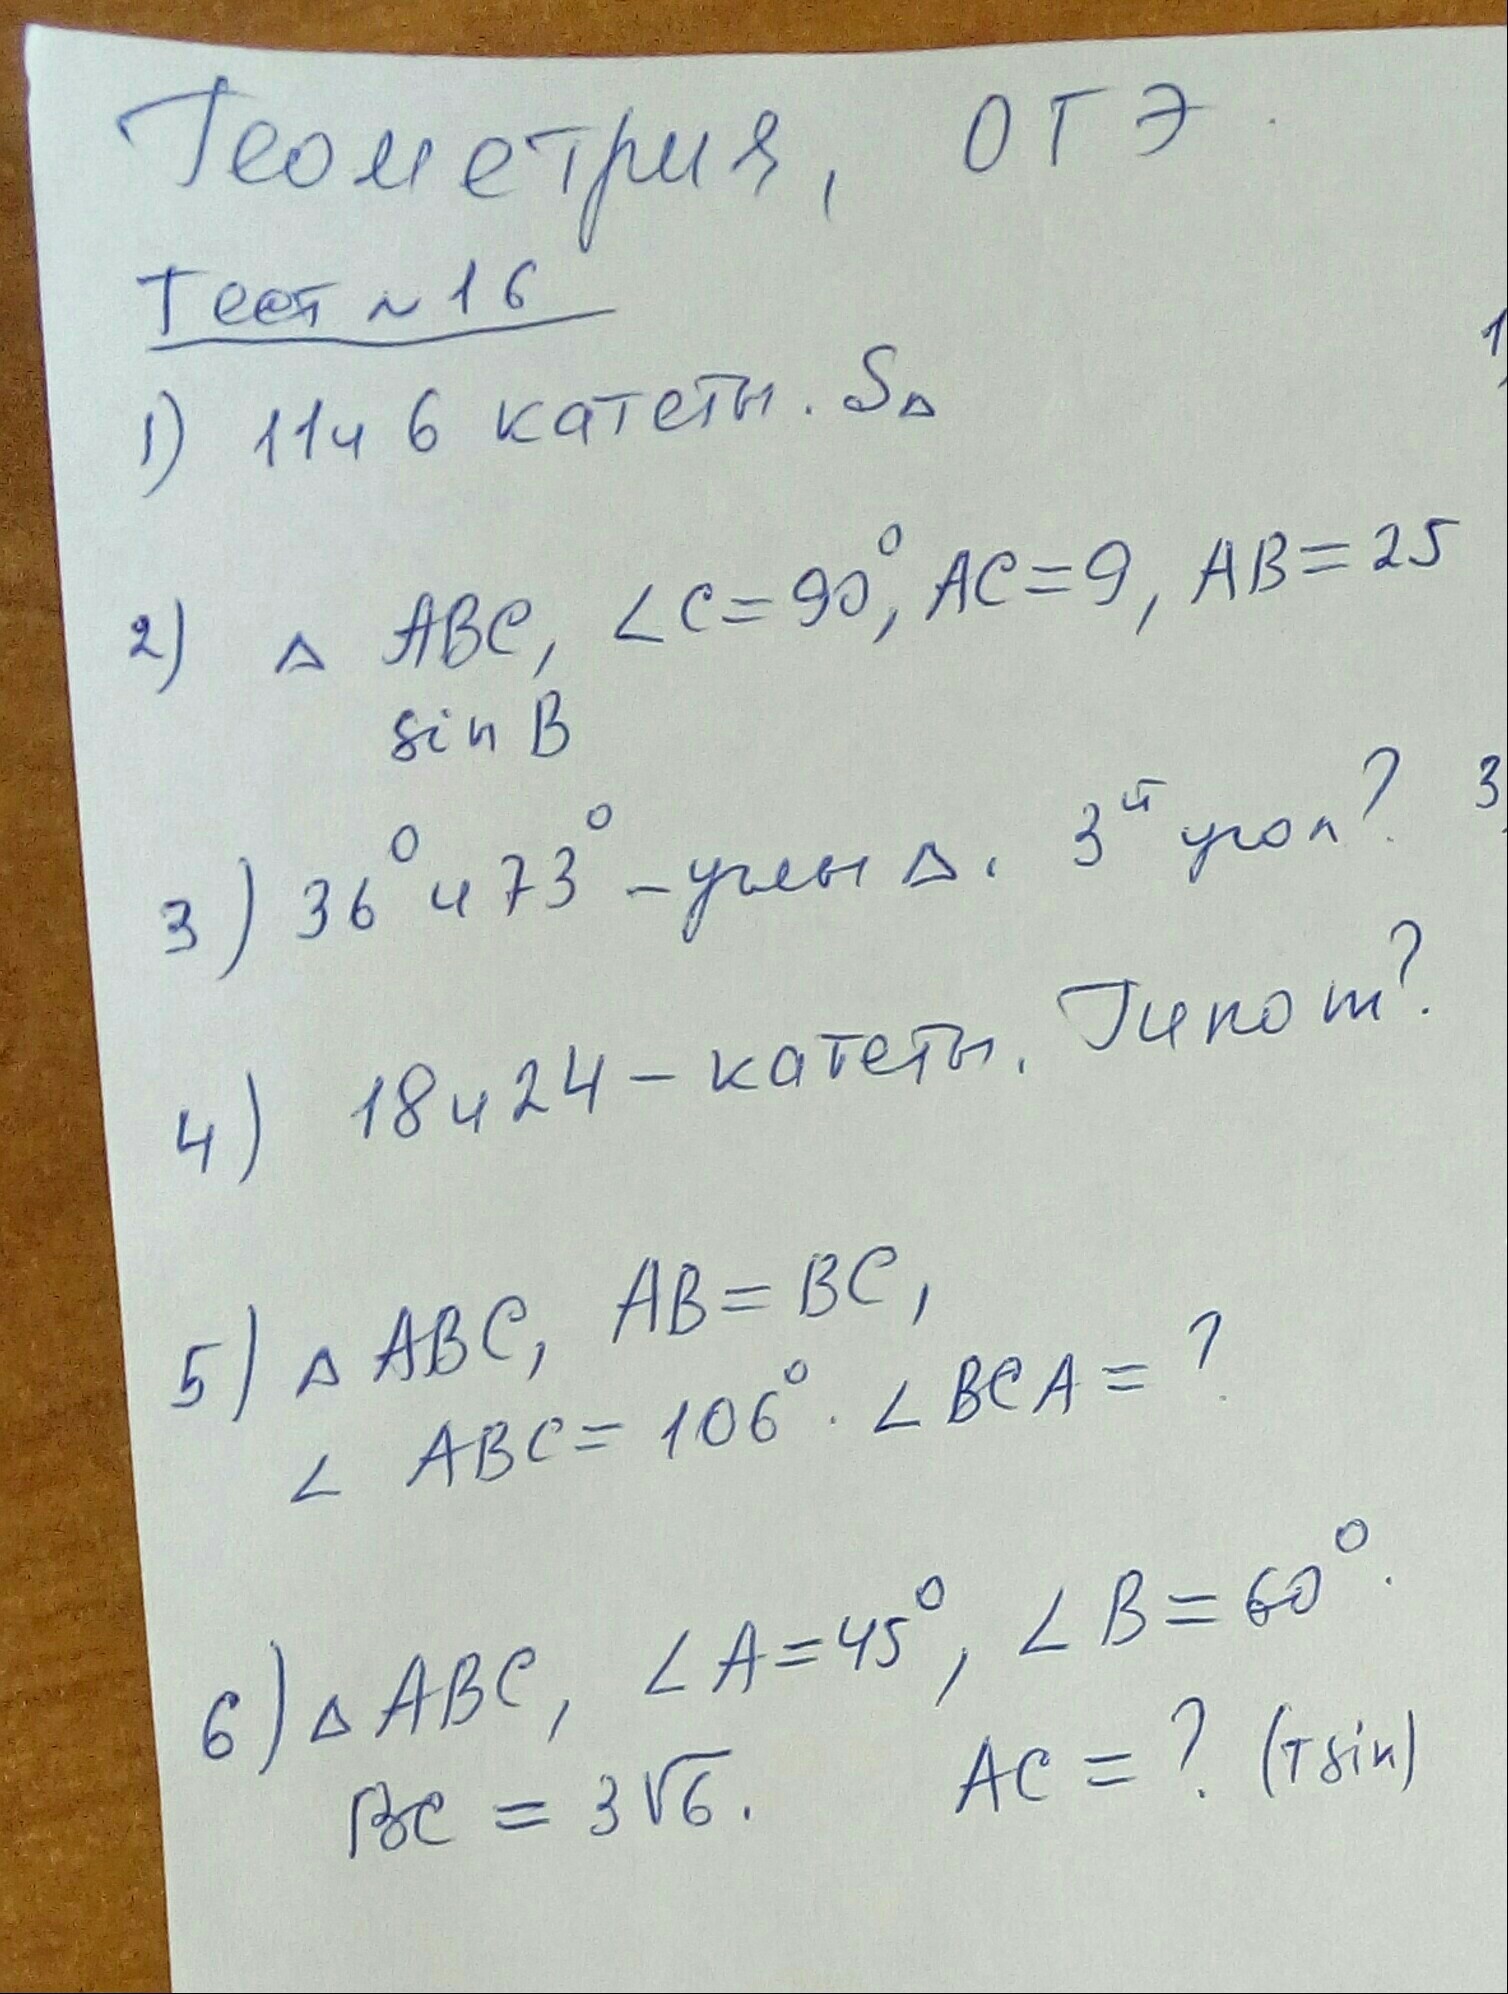 Геометрия, ОГЭ.
Тест ~ 16
1) 11 и 6 катеты. S△
2) △ ABC, ∠C=90°, AC=9, AB=25
sin B
3) 36° и 73° – углы △. 3й угол?
4) 18 и 24 – катеты. Гипот?
5) △ ABC, AB=BC,
∠ ABC=106°. ∠BCA=?
6) △ ABC, ∠A=45°, ∠B=60°.
BC=3√6. AC=? (т sin)